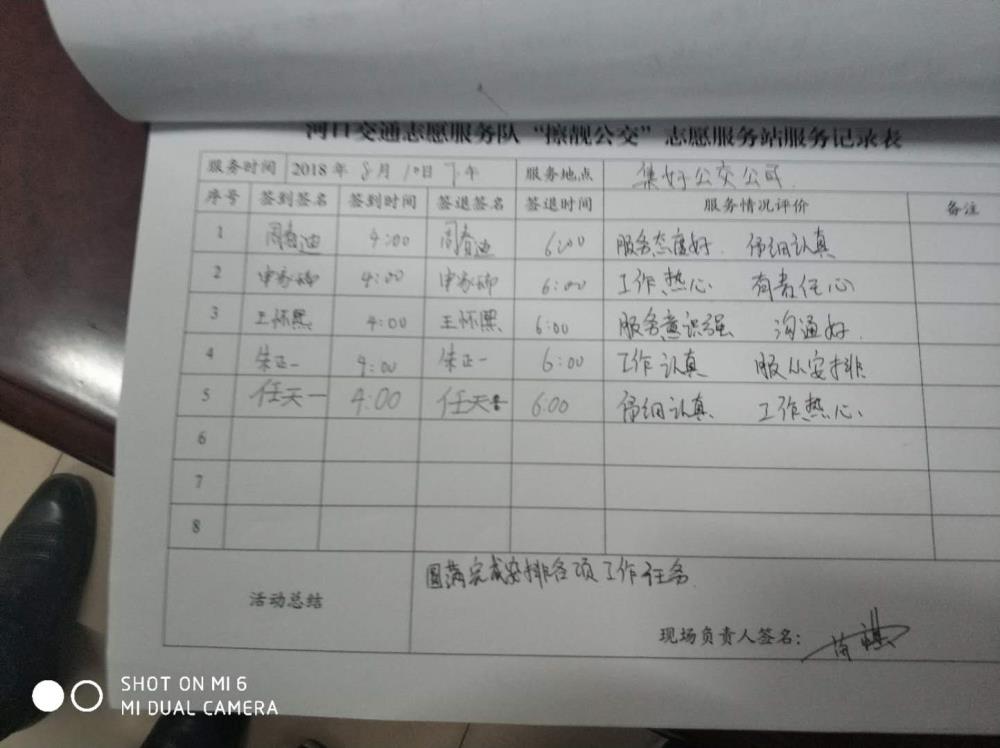 河口交通志愿服务队“擦靓公交”志愿服务站服务记录表
服务时间 2018 年 8月 10日 下午 服务地点 集好公交公司
序号 签到签名 签到时间 签退签名 签退时间 服务情况评价 备注
1 周 迪 4:00 周 迪 6:00 服务态度好 仔细认真
2 申家 4:00 申家 6:00 工作热心 有责任心
3 王怀熙 4:00 王怀熙 6:00 服务意识强 沟通好
4 朱正一 4:00 朱正一 6:00 工作认真 服从安排
5 任天一 4:00 任天 6:00 仔细认真 工作热心
6
7
8
活动总结 圆满完成安排各项工作任务
现场负责人签名:
SHOT ON MI 6
MI DUAL CAMERA